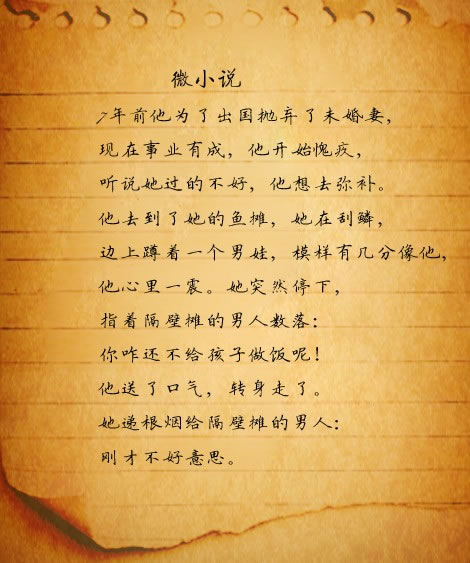 微小说
7年前他为了出国抛弃了未婚妻，
现在事业有成，他开始愧疚，
听说她过的不好，他想去弥补。
他去到了她的鱼摊，她在刮鳞，
边上蹲着一个男娃，模样有几分像他，
他心里一震。她突然停下，
指着隔壁摊的男人数落：
你咋还不给孩子做饭呢！
他送了口气，转身走了。
她递根烟给隔壁摊的男人：
刚才不好意思。